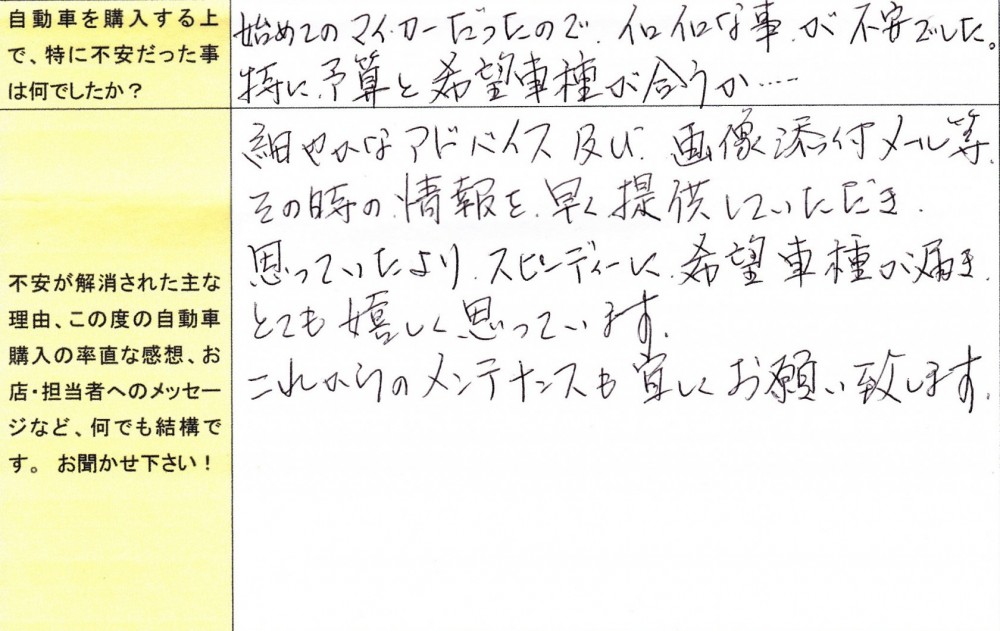 自動車を購入する上
で、特に不安だった事
は何でしたか?
始めてのマイ.カーだったので.イロイロな事.が不安でした。
特に.予算と希望車種が合うか……
不安が解消された主な
理由、この度の自動車
購入の率直な感想、お
店・担当者へのメッセー
ジなど、何でも結構で
す。 お聞かせ下さい!
細やかなアドバイス及び.画像添付メール等.
その時の.情報を.早く提供していただき.
思っていたより.スピーディーに.希望車種が届き.
とても嬉しく思っています.
これからのメンテナンスも宜しくお願い致します.